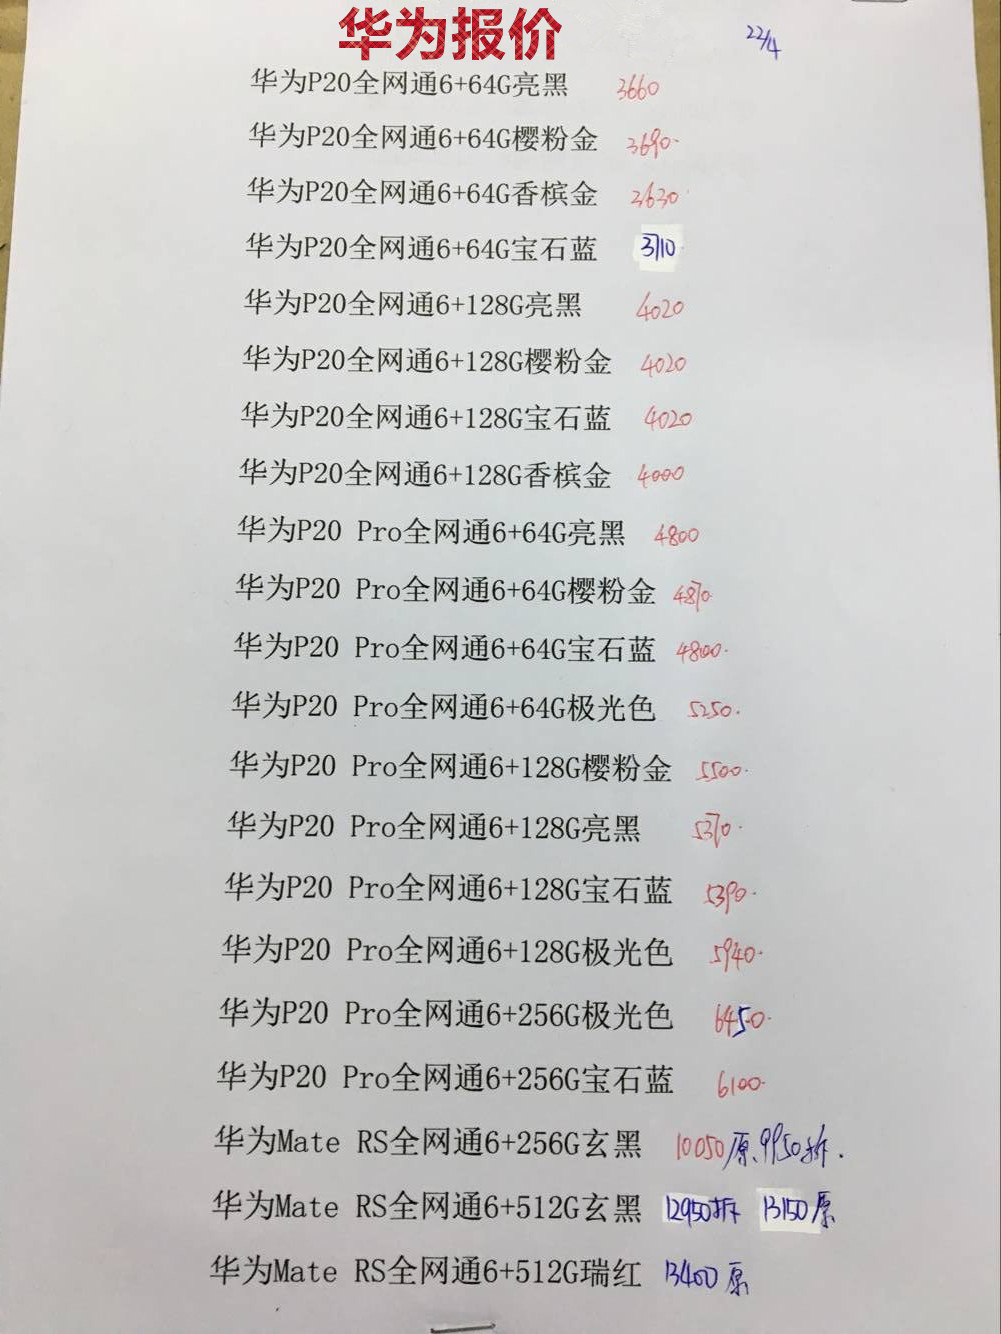 华为报价
22/4
华为P20全网通6+64G亮黑 3660
华为P20全网通6+64G樱粉金 3690.
华为P20全网通6+64G香槟金 3630
华为P20全网通6+64G宝石蓝 3710.
华为P20全网通6+128G亮黑 4020
华为P20全网通6+128G樱粉金 4020
华为P20全网通6+128G宝石蓝 4020
华为P20全网通6+128G香槟金 4000
华为P20 Pro全网通6+64G亮黑 4800
华为P20 Pro全网通6+64G樱粉金 4870.
华为P20 Pro全网通6+64G宝石蓝 4800.
华为P20 Pro全网通6+64G极光色 5250.
华为P20 Pro全网通6+128G樱粉金 5500.
华为P20 Pro全网通6+128G亮黑 5370.
华为P20 Pro全网通6+128G宝石蓝 5390.
华为P20 Pro全网通6+128G极光色 5940.
华为P20 Pro全网通6+256G极光色 6450.
华为P20 Pro全网通6+256G宝石蓝 6100.
华为Mate RS全网通6+256G玄黑 10050原、9950拆.
华为Mate RS全网通6+512G玄黑 12950拆 13150原
华为Mate RS全网通6+512G瑞红 13400原